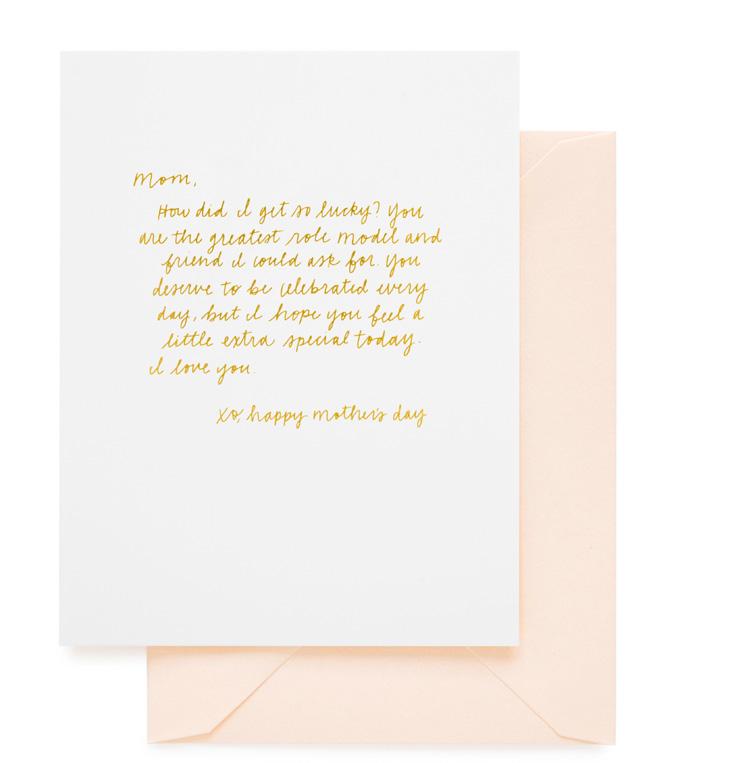 Mom,
How did I get so lucky? You
are the greatest role model and
friend I could ask for. You
deserve to be celebrated every
day, but I hope you feel a
little extra special today.
I love you.
xo, happy mother's day